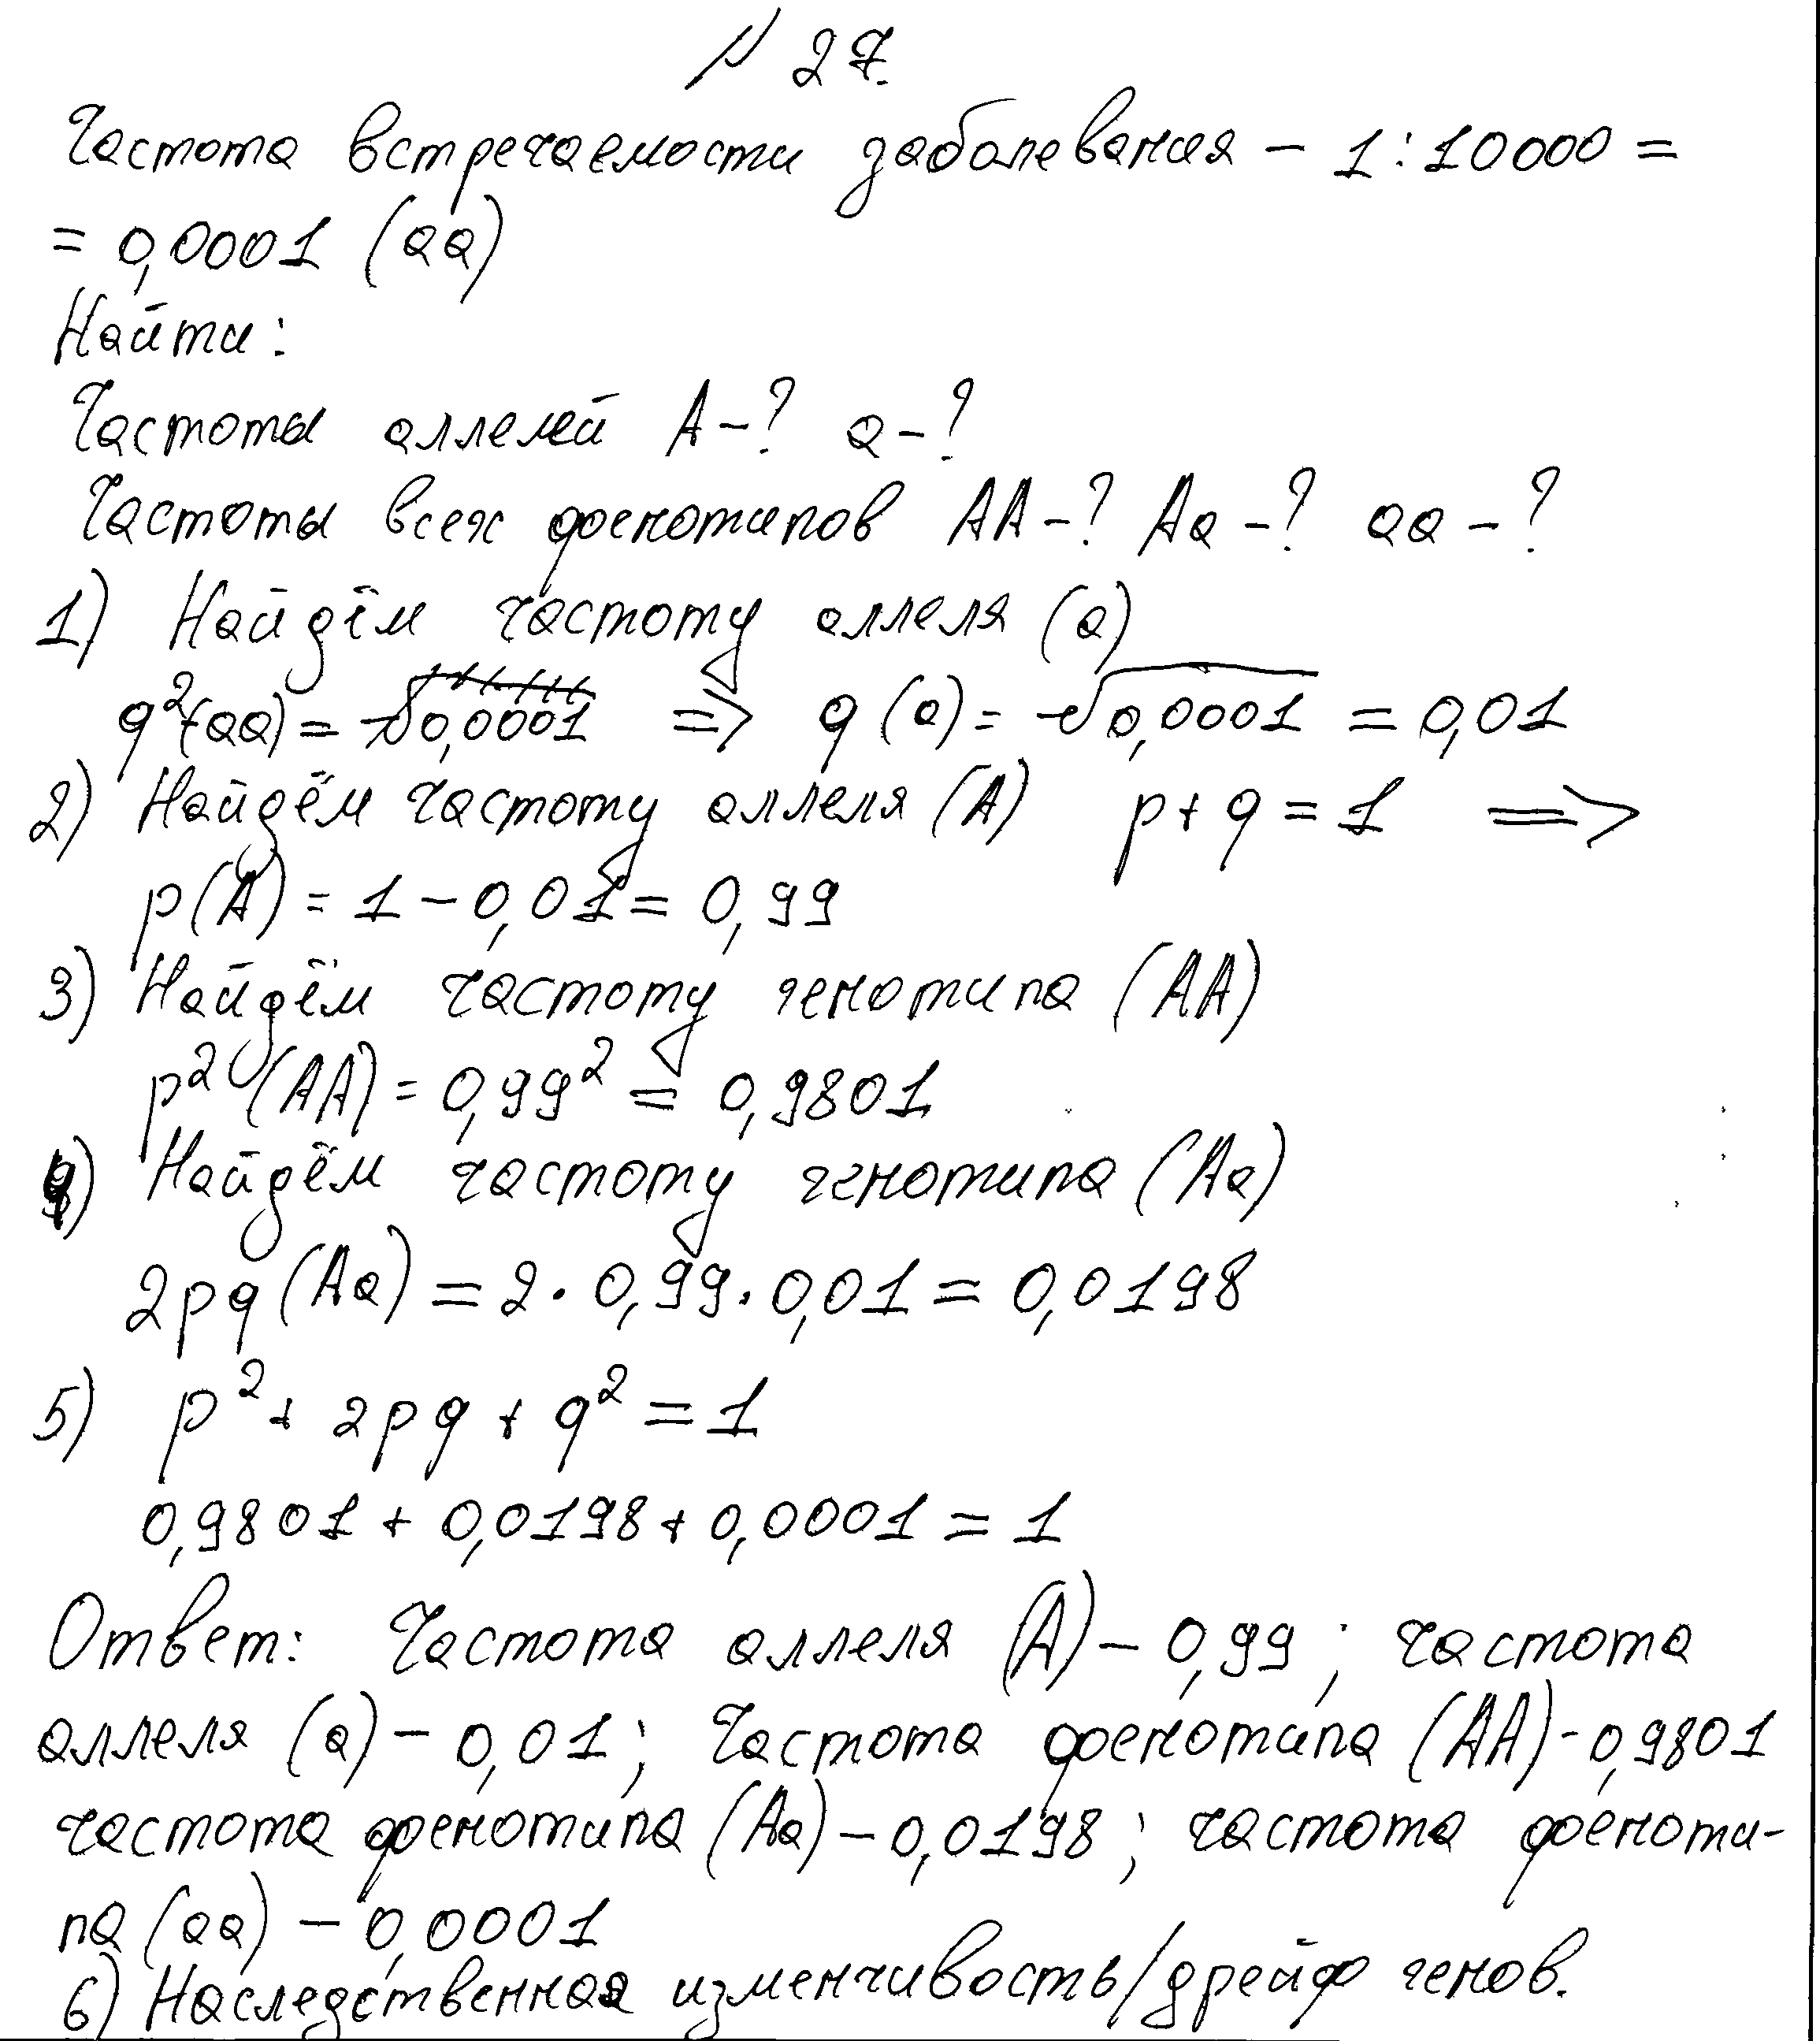 № 27.
Частота встречаемости заболевания – 1:10000 =
= 0,0001 (aa)
Найти:
Частоты аллелей А-? а-?
Частоты всех фенотипов АА-? Аа-? аа-?
1) Найдём частоту аллеля (а)
q²(аа) = √0,0001 => q(а) = √0,0001 = 0,01
2) Найдём частоту аллеля (А) p+q=1 =>
p(А) = 1-0,01 = 0,99
3) Найдём частоту генотипа (АА)
p² (АА) = 0,99² = 0,9801
4) Найдём частоту генотипа (Аа)
2pq(Аа) = 2·0,99·0,01 = 0,0198
5) p² + 2pq + q² = 1
0,9801 + 0,0198 + 0,0001 = 1
Ответ: Частота аллеля (А) – 0,99; частота
аллеля (а) – 0,01; Частота фенотипа (АА) - 0,9801
частота фенотипа (Аа) – 0,0198; частота феноти-
па (аа) – 0,0001
6) Наследственная изменчивость/дрейф генов.